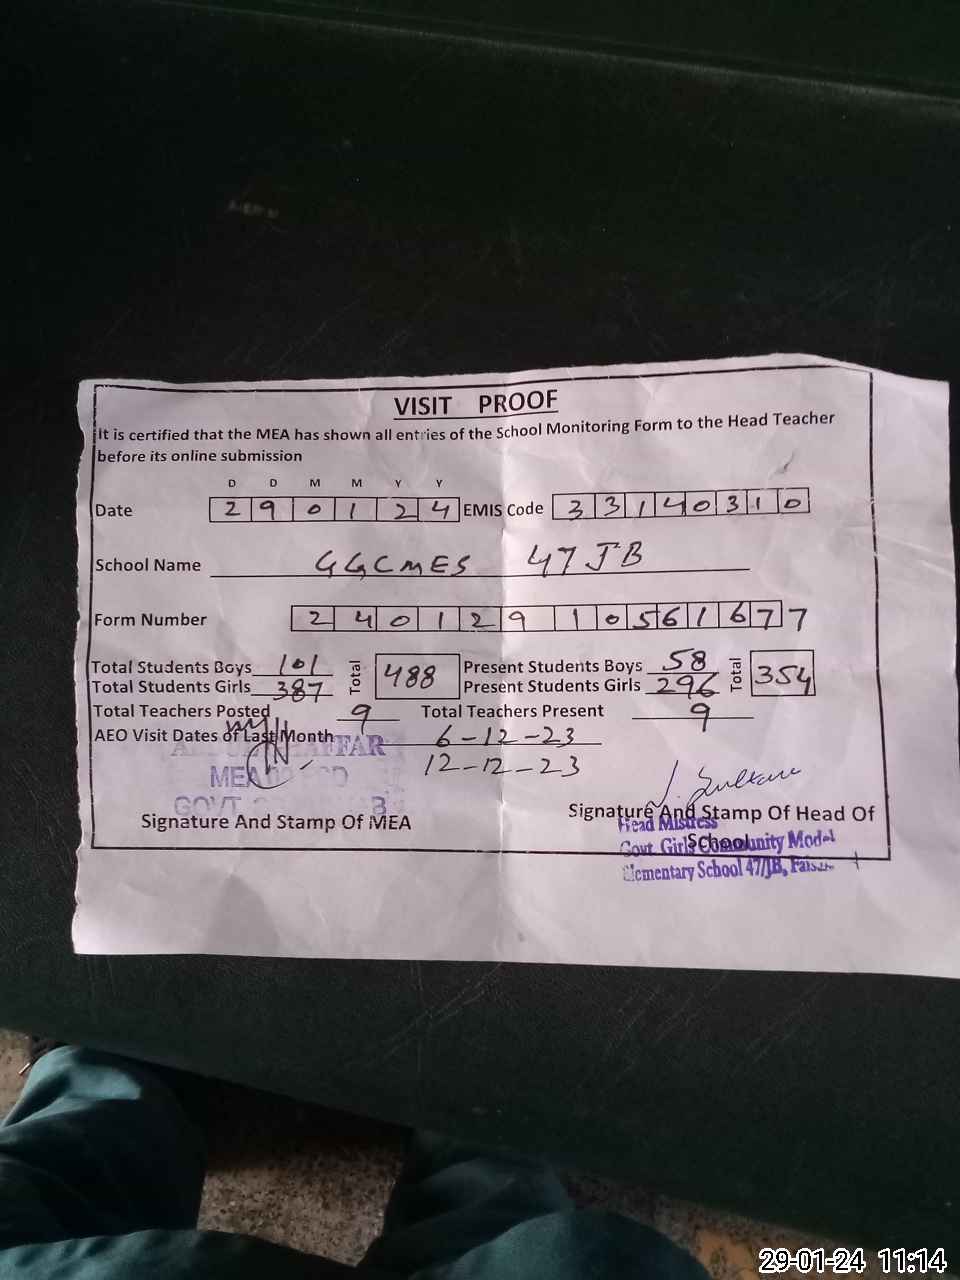 VISIT PROOF
It is certified that the MEA has shown all entries of the School Monitoring Form to the Head Teacher
before its online submission
D D M M Y Y
Date 29 01 24 EMIS Code 33140310
School Name GGCMES 47 JB
Form Number 240129 10561677
Total Students Boys 101 Total 488 Present Students Boys 58 Total 354
Total Students Girls 387 Present Students Girls 296
Total Teachers Posted 9 Total Teachers Present 9
AEO Visit Dates of Last Month 6-12-23
12-12-23
MEA
GOVT
Signature And Stamp Of MEA
Signature And Stamp Of Head Of
School
Head Mistress
Govt. Girls Community Model
Elementary School 47/JB,
29-01-24 11:14